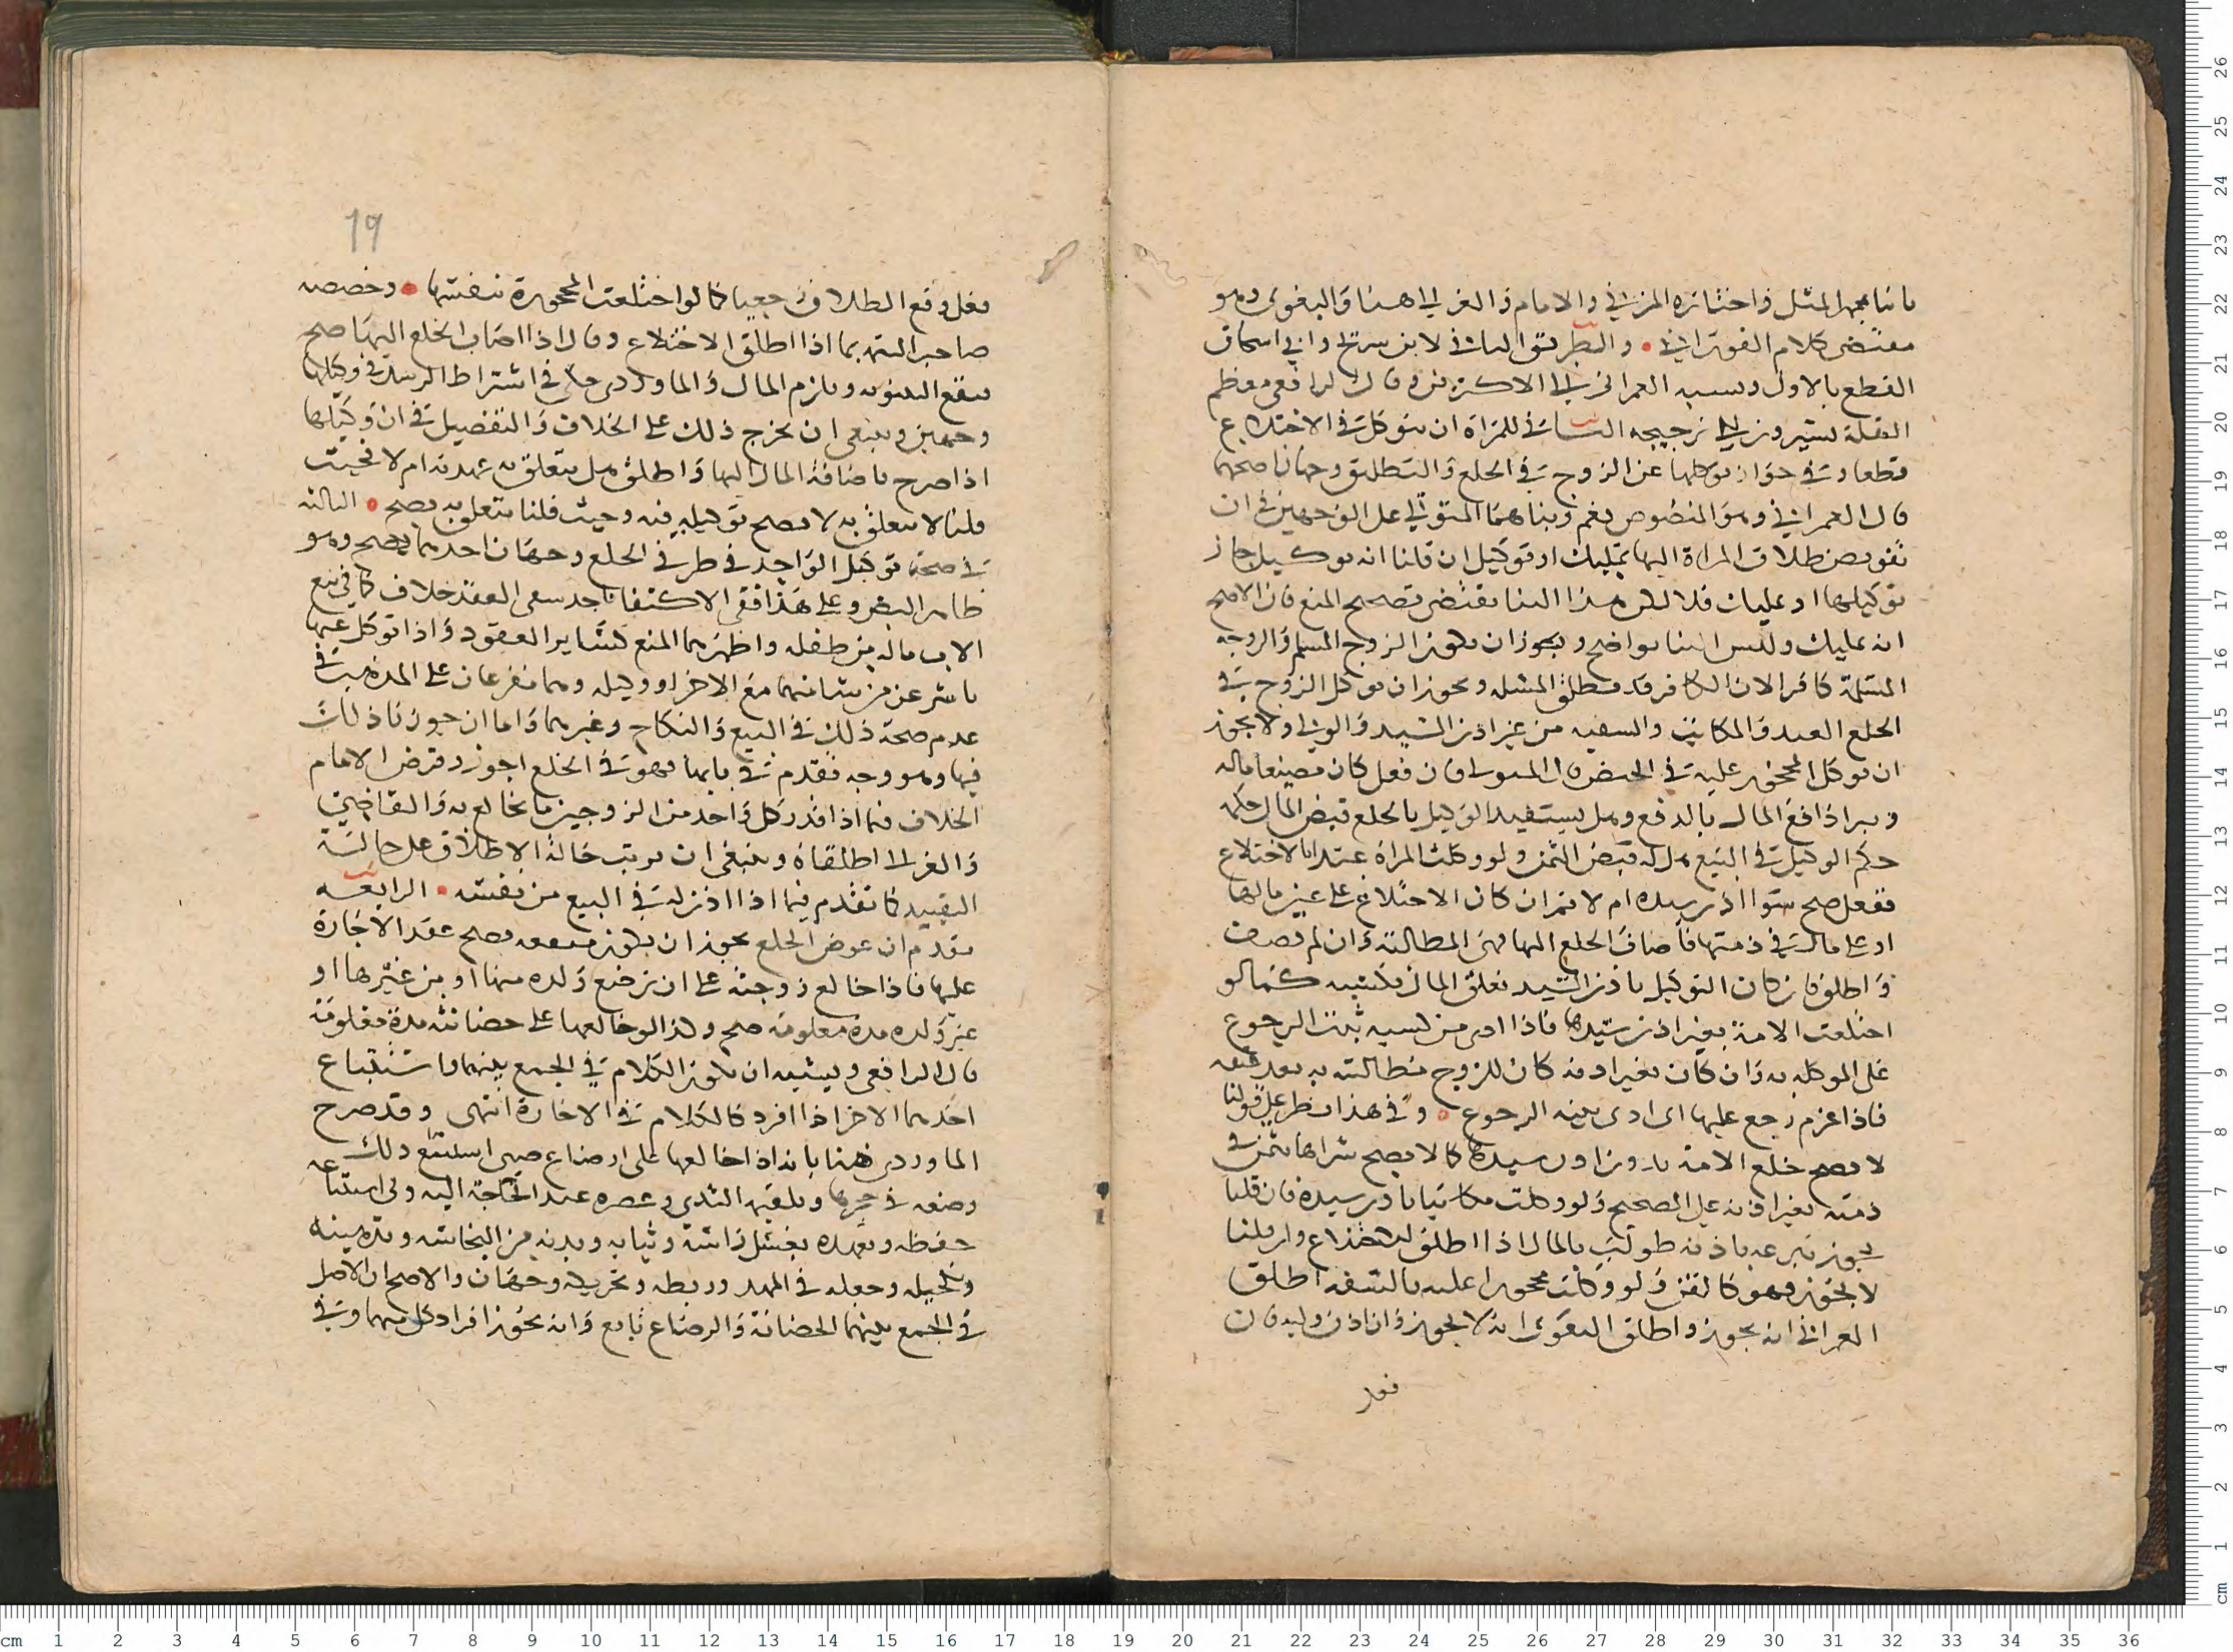 باتنا بمهر المثل واختاره المزني والامام والغزالي هنا والبغوي وهو
مقتضى كلام الفوراني والطريق الثاني لابن سريج وابي اسحاق
القطع بالاول ونسبه العمراني الى الاكثرين وقال الرافعي معظم
النقلة يشيرون الى ترجيحه الثانية للمراة ان تتوكل في الاختلاع
قطعا وفي جواز توكلها عن الزوج في الخلع والتطليق وجهان اصحهما
قال العمراني وهو المنصوص نعم وبناهما المتولي على الوجهين في ان
تفويض طلاق المراة اليها تمليك او توكيل ان قلنا انه توكيل جاز
توكيلها او تمليك فلا لكن هذا البنا يقتضي تصحيح المنع فان الاصح
انه تمليك وليس البنا بواضح ويجوز ان يكون الزوج المسلم والزوجة
المسلمة كافرا لان الكافر قد يطلق المسلمة ويجوز ان يوكل الزوج في
الخلع العبد والمكاتب والسفيه من غير اذن السيد والولي ولا يجوز
ان يوكل المحجور عليه في القبض قال المتولي فان فعل كان مضيعا ماله
ويبرا دافع المال بالدفع وهل يستفيد الوكيل بالخلع قبض المال حكمه
حكم الوكيل في البيع هل له قبض الثمن ولو وكلت المراة عبدا بالاختلاع
ففعل صح سوا اذن سيده ام لا ثم ان كان الاختلاع على عين مالها
او على مال في ذمتها فاضاف الخلع اليها فهي المطالبة وان لم يضف
واطلق فان كان التوكيل باذن السيد تعلق المال بكسبه كما لو
اختلعت الامة بغير اذن سيدها فاذا ادى من كسبه ثبت الرجوع
على الموكلة به وان كان بغير اذنه كان للزوج مطالبته به بعد عتقه
فاذا غرم رجع عليها اى ادى بنية الرجوع وفي هذا نظر على قولنا
لا يصح خلع الامة بدون اذن سيدها كما لا يصح شراها بثمن في
ذمته بغير اذنه على الصحيح ولو وكلت مكاتبا باذن سيده فان قلنا
يجوز تبرعه باذنه طولب بالمال اذا اطلق الاختلاع وان قلنا
لا يجوز فهو كالقن ولو وكلت محجورا عليه بالسفه اطلق
العمراني انه يجوز واطلق البغوي انه لا يجوز وان اذن وليه فان
فعل
19
فعل وقع الطلاق رجعيا كما لو اختلعت المحجورة بنفسها وخصصه
صاحب التتمة بما اذا اطلق الاختلاع وقال اذا اضاف الخلع اليها صح
فتقع البينونة ويلزم المال والماوردي حكى في اشتراط الرشد في وكيلها
وجهين وينبغي ان يخرج ذلك على الخلاف والتفصيل في ان وكيلها
اذا صرح باضافة المال اليها واطلق هل يتعلق به عهدته ام لا فحيث
قلنا لا يتعلق به لا يصح توكيله فيه وحيث قلنا يتعلق به يصح الثالثة
في صحة توكيل الواحد في طرفي الخلع وجهان احدهما يصح وهو
ظاهر النص وعلى هذا ففي الاكتفا باحد شقي العقد خلاف كما في بيع
الاب ماله من طفله واظهرهما المنع كسائر العقود واذا توكل عنهما
باشر عن من شا منهما مع الاخر او وكيله وهما مفرعان على المذهب في
عدم صحة ذلك في البيع والنكاح وغيرهما واما ان جوزنا ذلك
فيها وهو وجه تقدم في بابها فهو في الخلع اجوز وفرض الامام
الخلاف فيما اذا قدر كل واحد من الزوجين ما يخالع به والقاضي
والغزالي اطلقاه وينبغي ان يرتب حالة الاطلاق على حالة
التقييد كما تقدم فيما اذا اذن له في البيع من نفسه الرابعة
تقدم ان عوض الخلع يجوز ان يكون منفعة يصح عقد الاجارة
عليها فاذا خالع زوجته على ان ترضع ولده منها او من غيرها او
غير ولده مدة معلومة صح وكذا لو خالعها على حضانته مدة معلومة
قال الرافعي ويشبه ان يكون الكلام في الجمع بينهما واستتباع
احدهما الاخر اذا افرد كالكلام في الاجارة انتهى وقد صرح
الماوردي هنا بانه اذا خالعها على ارضاع صبي استتبع ذلك
وضعه في حجرها وتلقيمه الثدي وعصره عند الحاجة اليه وفي استتباعه
حفظه وتعهده بغسل راسه وثيابه وبدنه من النجاسة وتدهينه
وتكحيله وجعله في المهد وربطه وتحريكه وجهان والاصح ان الاصل
في الجمع بينهما الحضانة والرضاع تابع وانه يجوز افراد كل منهما وفي